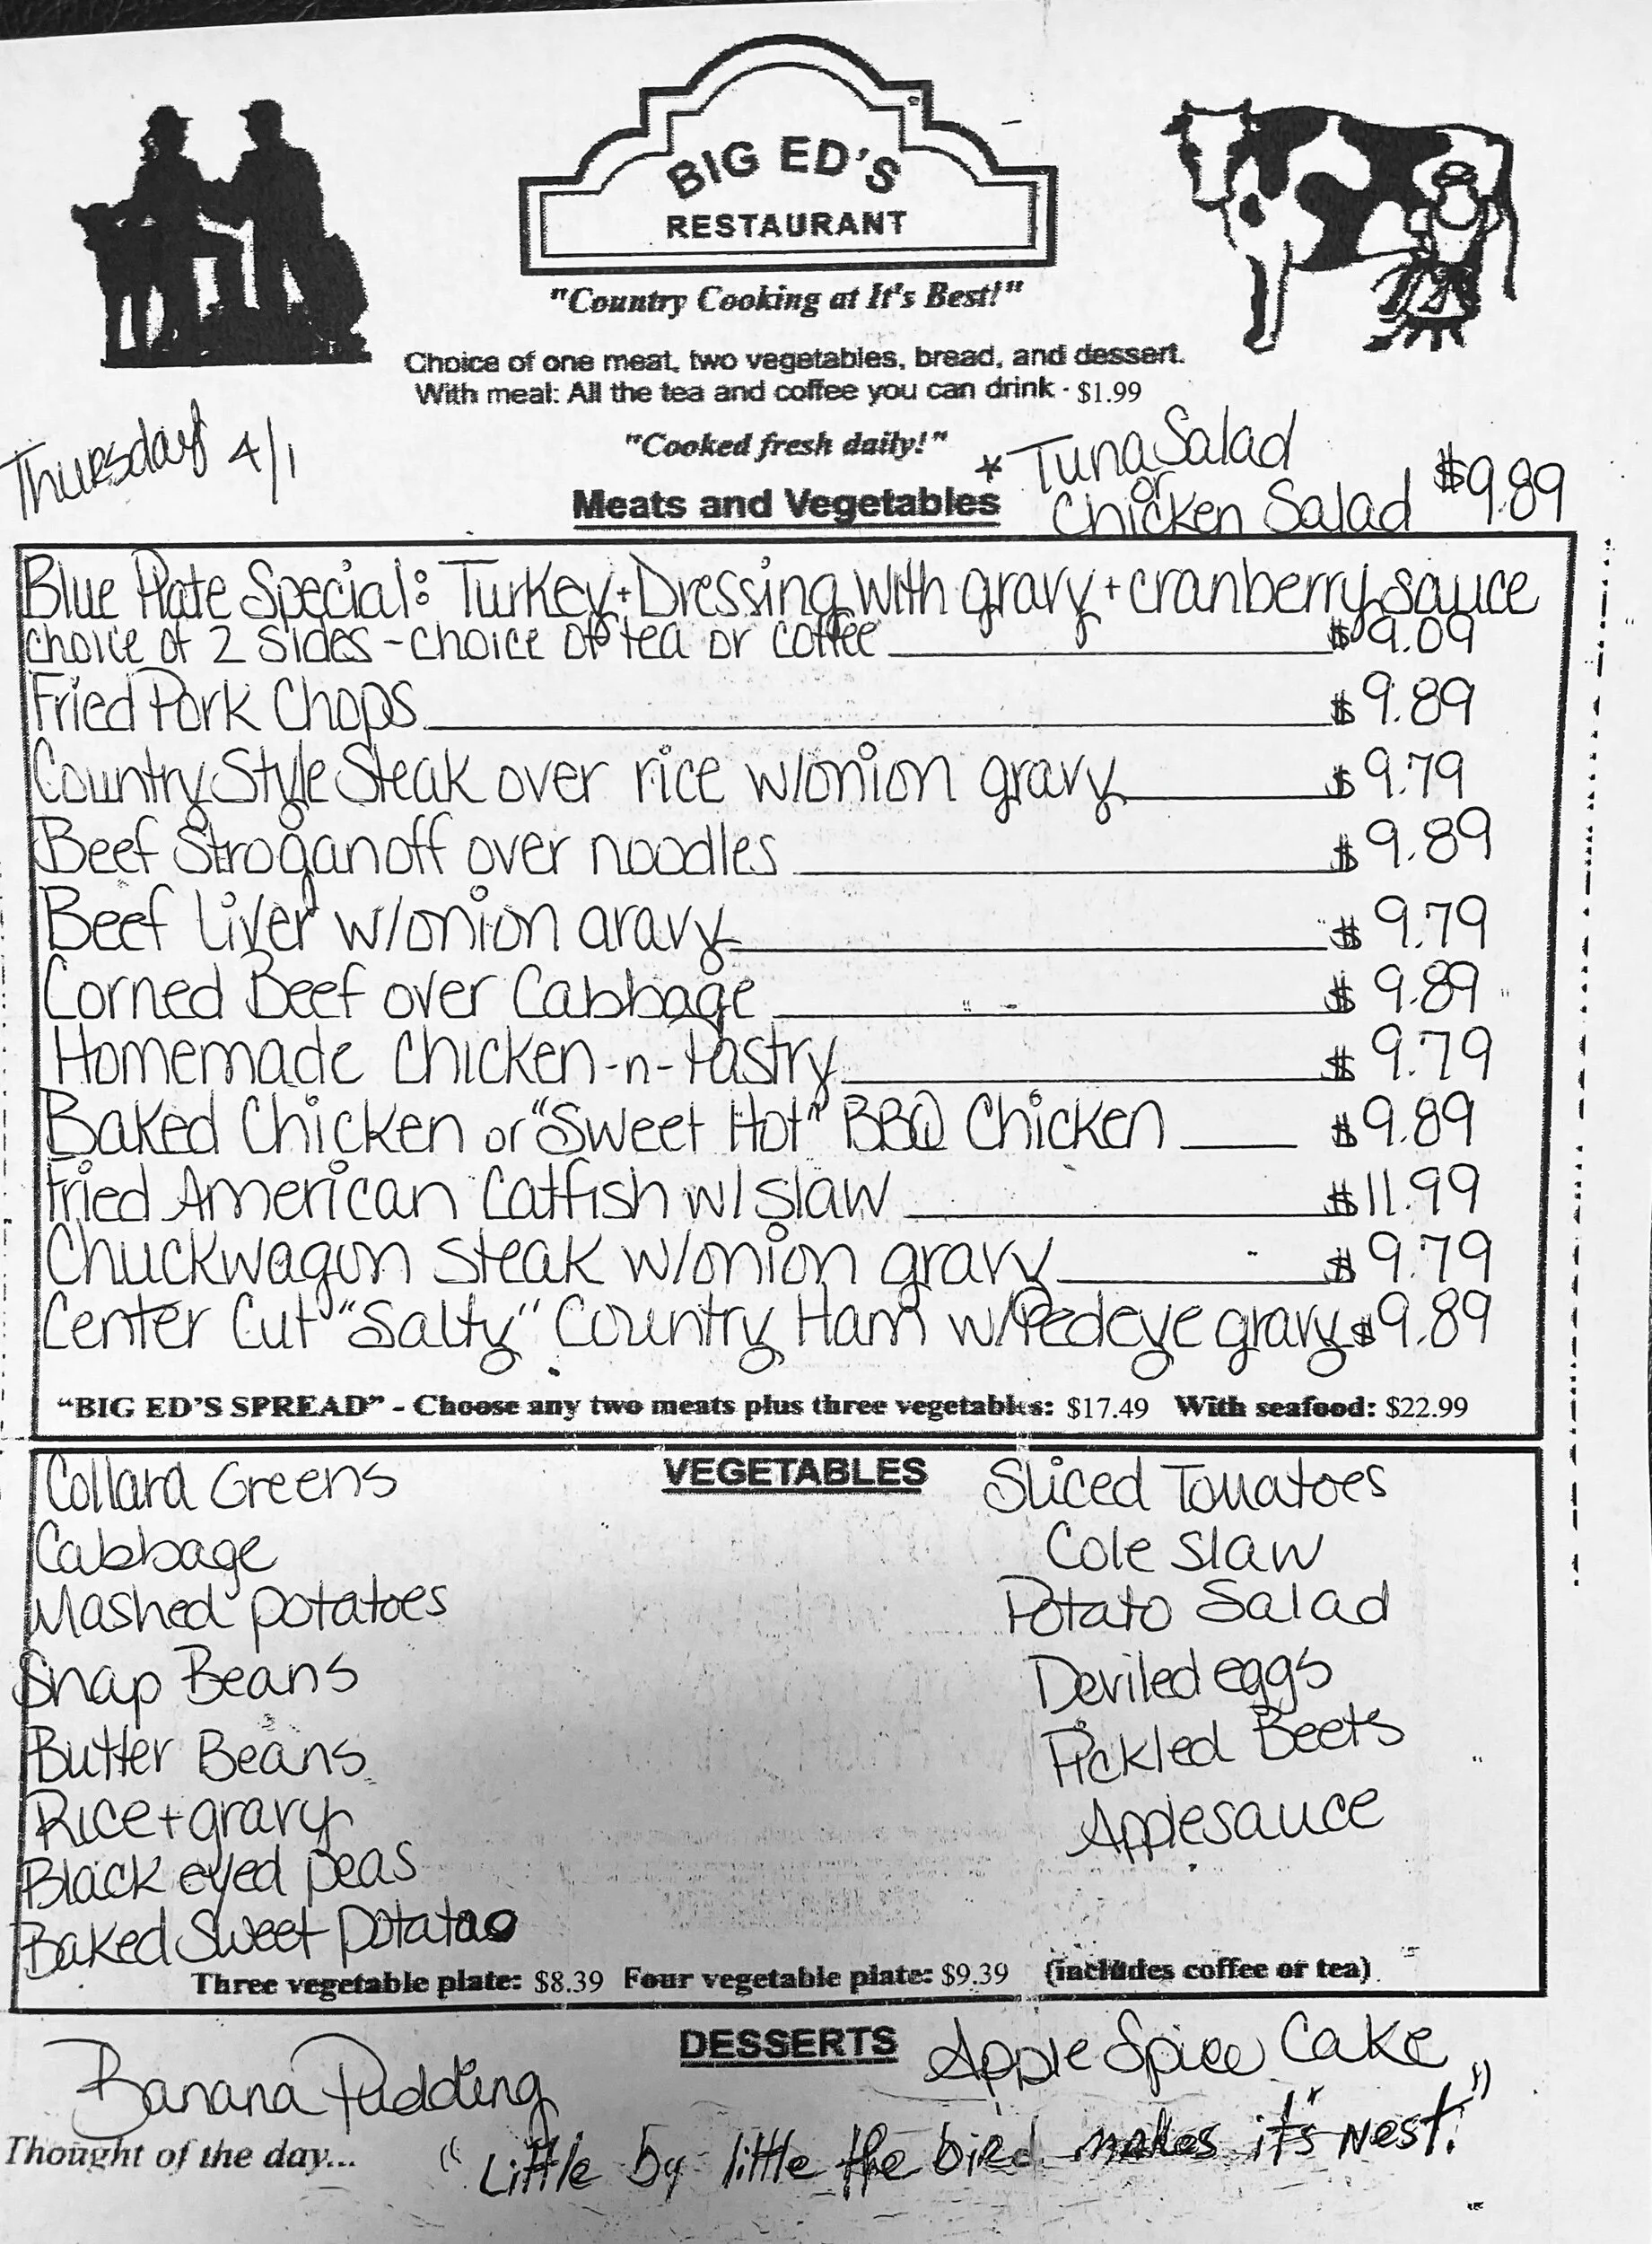 BIG ED'S
RESTAURANT
"Country Cooking at It's Best!"
Choice of one meat, two vegetables, bread, and dessert.
With meal: All the tea and coffee you can drink - $1.99
"Cooked fresh daily!"
Thursday 4/1
* Tuna Salad
or
Chicken Salad $9.89
Meats and Vegetables
Blue Plate Special: Turkey + Dressing with gravy + cranberry sauce
choice of 2 sides - choice of tea or coffee $9.09
Fried Pork Chops $9.89
Country Style Steak over rice w/onion gravy $9.79
Beef Stroganoff over noodles $9.89
Beef Liver w/onion gravy $9.79
Corned Beef over Cabbage $9.89
Homemade Chicken-n-Pastry $9.79
Baked Chicken or "Sweet Hot" BBQ Chicken $9.89
Fried American Catfish w/slaw $11.99
Chuckwagon Steak w/onion gravy $9.79
Center Cut "Salty" Country Ham w/Redeye gravy $9.89
"BIG ED'S SPREAD" - Choose any two meats plus three vegetables: $17.49 With seafood: $22.99
VEGETABLES
Collard Greens
Cabbage
Mashed potatoes
Snap Beans
Butter Beans
Rice + gravy
Black eyed peas
Baked Sweet Potato
Sliced Tomatoes
Cole Slaw
Potato Salad
Deviled eggs
Pickled Beets
Applesauce
Three vegetable plate: $8.39 Four vegetable plate: $9.39 (includes coffee or tea)
DESSERTS
Banana Pudding
Apple Spice Cake
Thought of the day... "Little by little the bird makes it's nest."